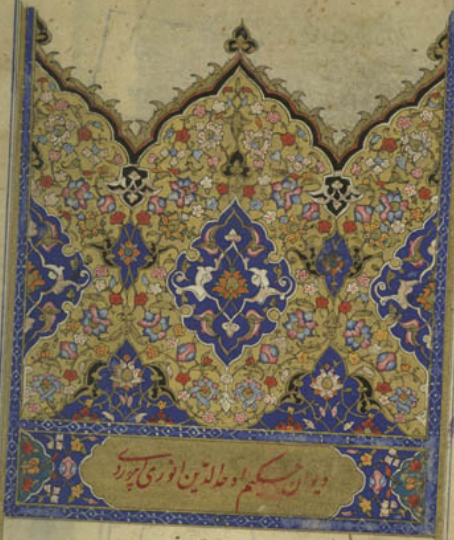 دیوان حکیم اوحدالدین انوری ابیوردی